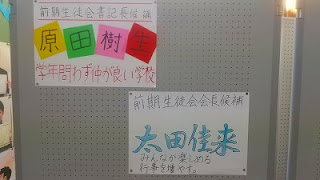 前期生徒会書記長候補
原田樹生
学年問わず仲が良い学校
前期生徒会会長候補
太田佳来
みんなが楽しめる
行事を増やす。